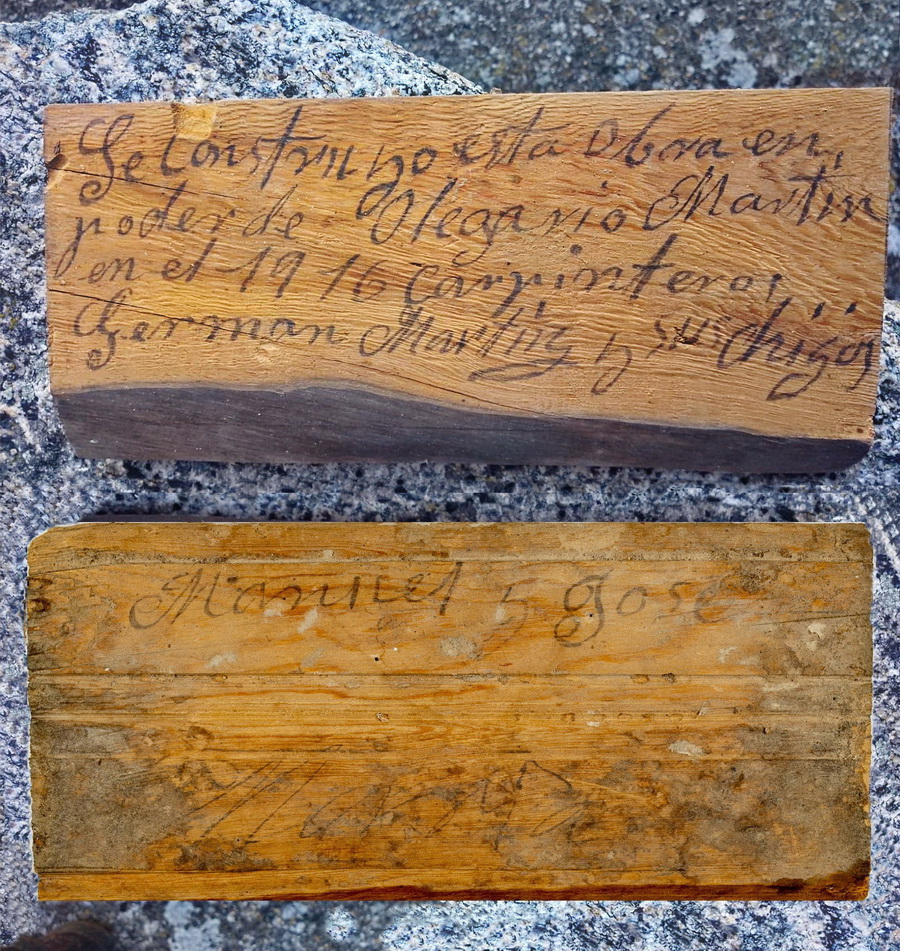 Se Construyo esta Obra en,
poder de Olegario Martin
en el 1916 Carpinteros
German Martin y sus Hijos
Manuel y Jose